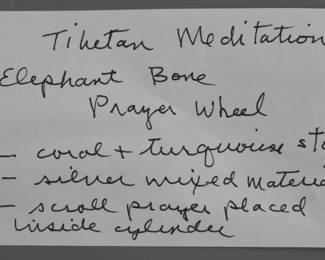 Tibetan Meditation
Elephant Bone
Prayer Wheel
- coral + turquoise sto
- silver mixed materia
- scroll prayer placed
inside cylinder